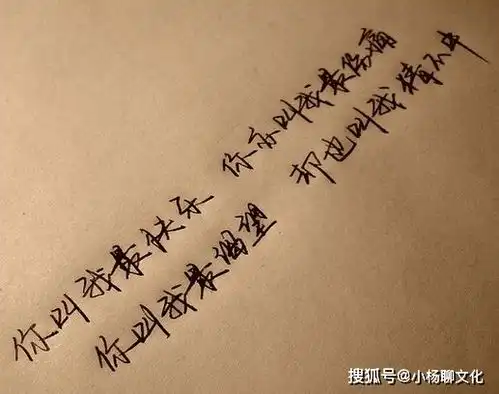 你叫我最快乐 你亦叫我最伤痛
你叫我最渴望 却也叫我猜不中
搜狐号@小杨聊文化